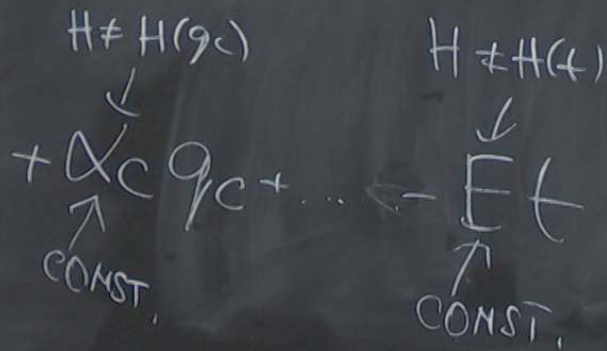 H ≠ H(qc) H ≠ H(t)
+ αc qc + ... - E t
CONST. CONST.